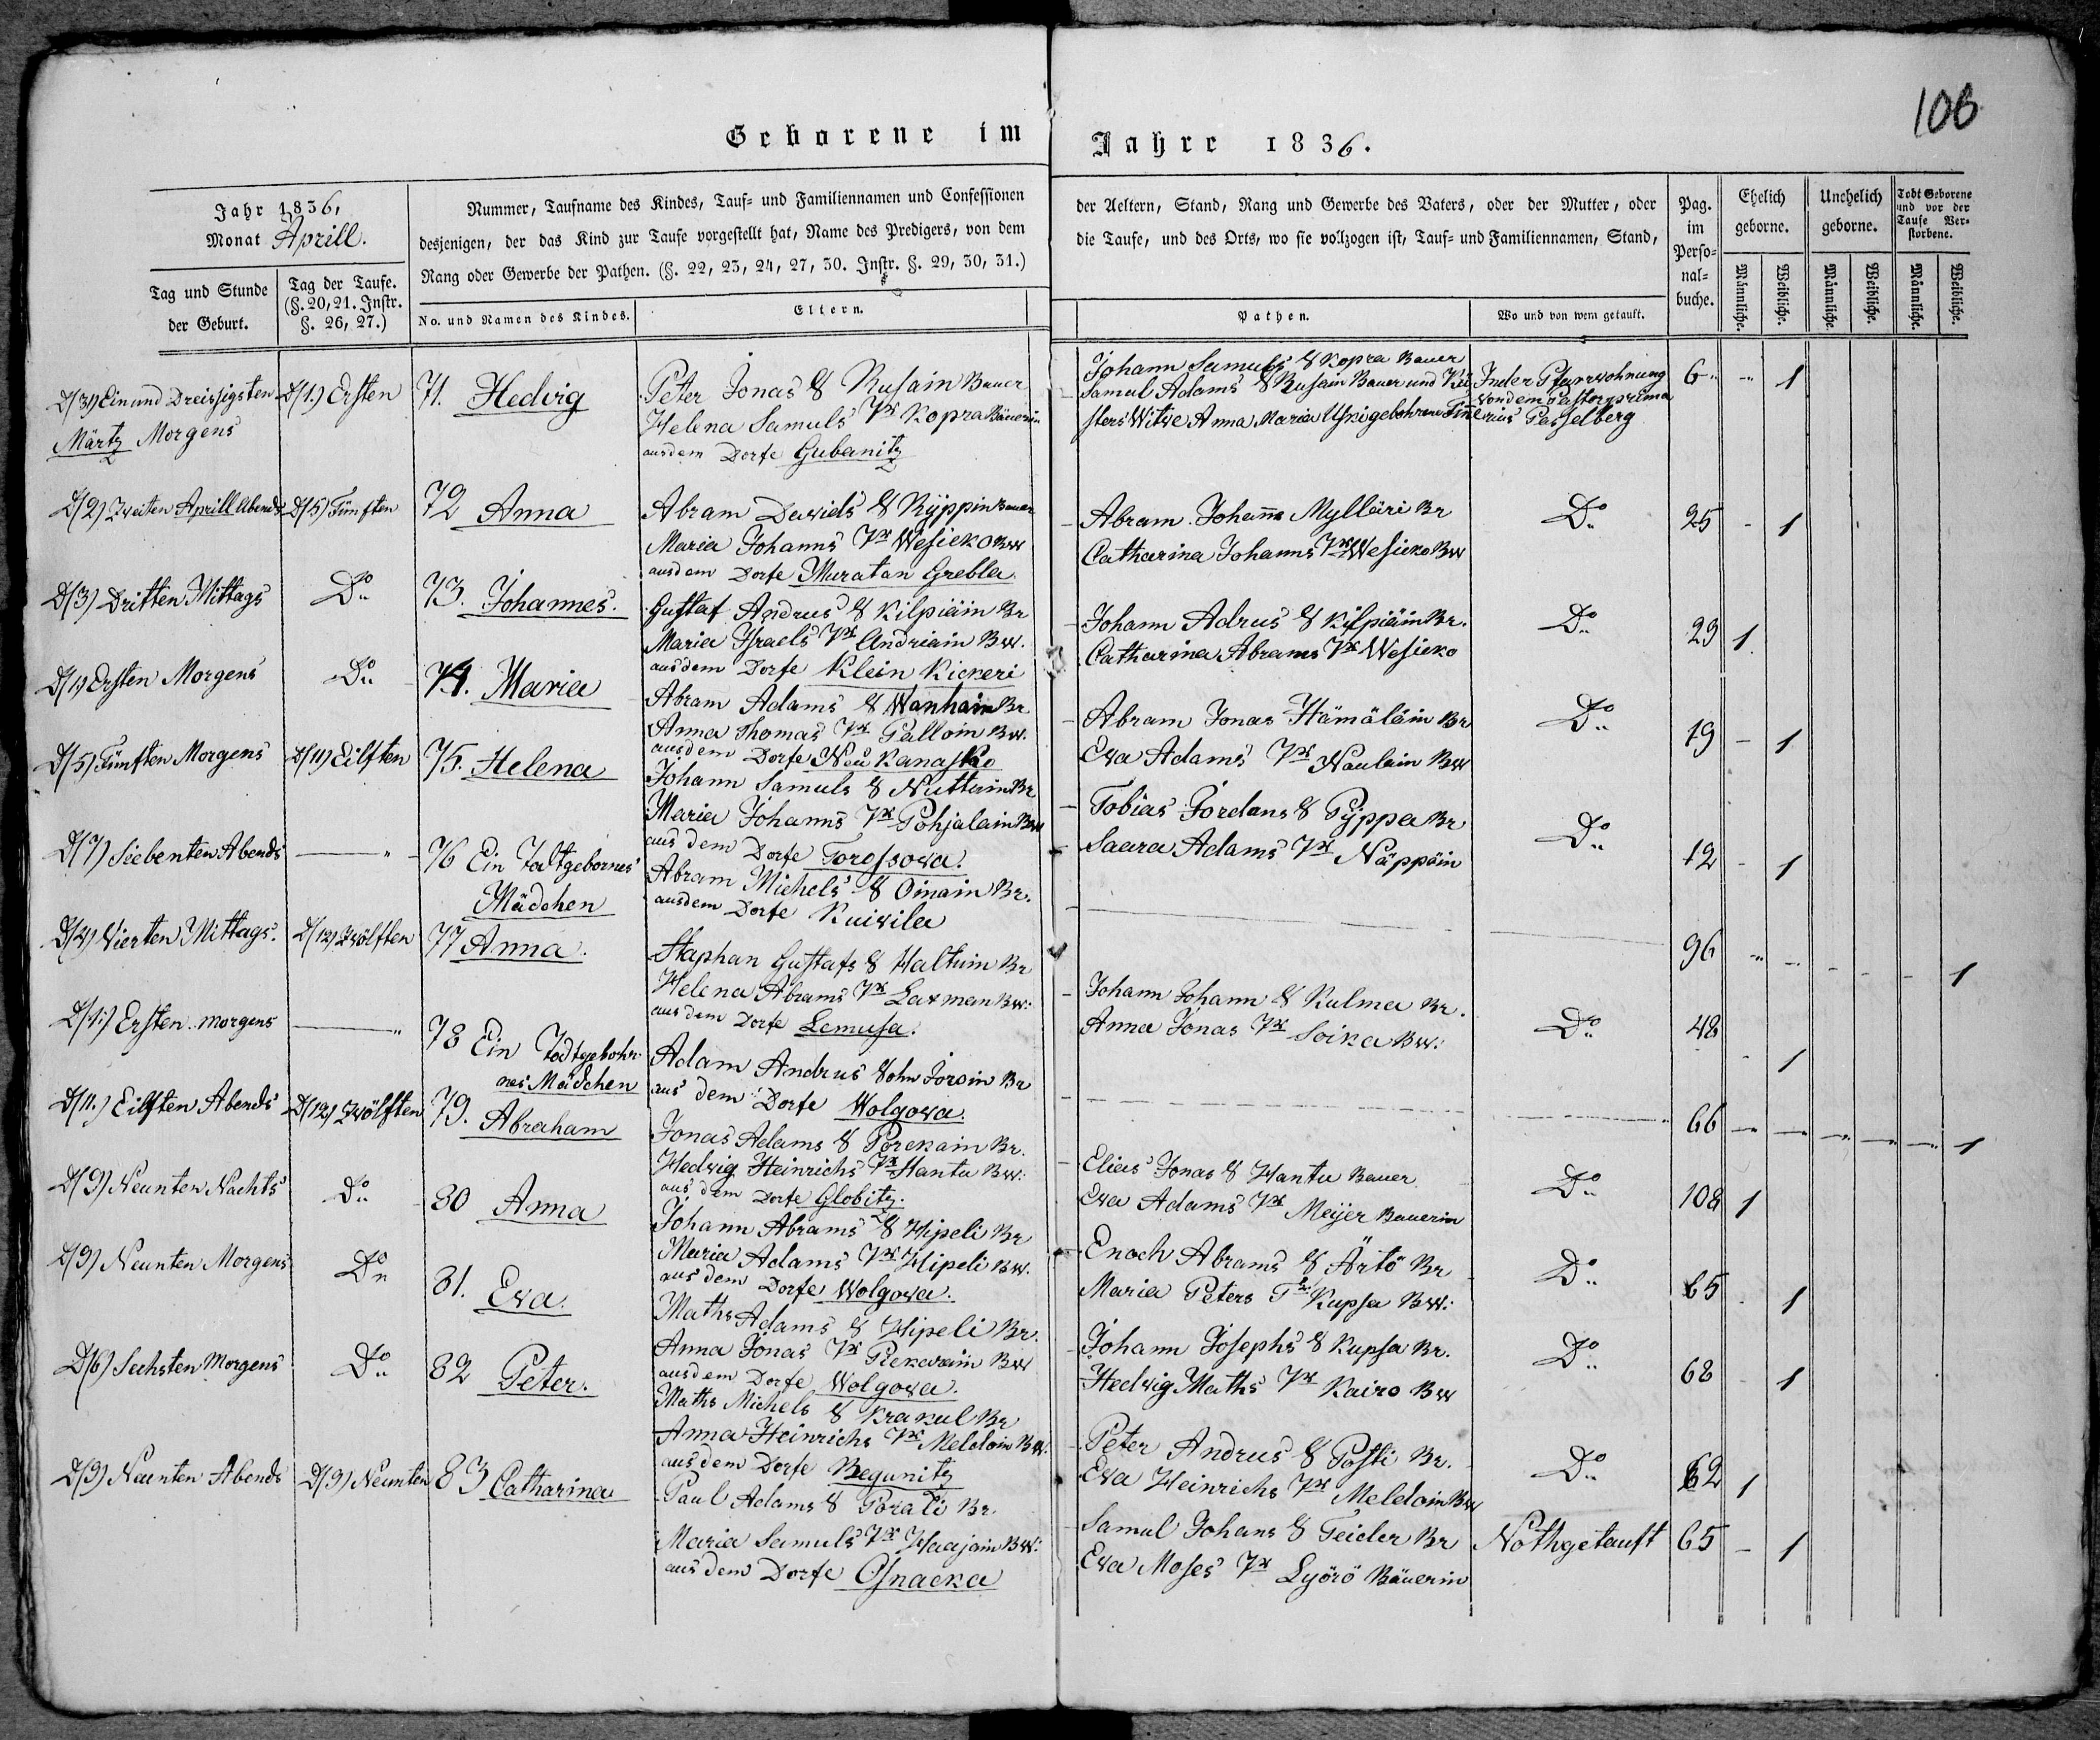 106
Geborene im Jahre 1836.
Jahr 1836,
Monat Aprill.
Tag und Stunde
der Geburt.
Tag der Taufe.
(§. 20, 21. Instr.
§. 26, 27.)
Nummer, Taufname des Kindes, Tauf- und Familiennamen und Confessionen
desjenigen, der das Kind zur Taufe vorgestellt hat, Name des Predigers, von dem
Rang oder Gewerbe der Pathen. (§. 22, 23, 24, 27, 30. Instr. §. 29, 30, 31.)
No. und Namen des Kindes.
Eltern.
der Aeltern, Stand, Rang und Gewerbe des Vaters, oder der Mutter, oder
die Taufe, und des Orts, wo sie vollzogen ist, Tauf- und Familiennamen, Stand,
Pathen.
Wo und von wem getauft.
Pag.
im
Perso-
nal-
buche.
Ehelich
geborne.
Unehelich
geborne.
Todt Geborene
und vor der
Taufe Ver-
storbene.
Männliche.
Weibliche.
Männliche.
Weibliche.
Männliche.
Weibliche.
D(31) Ein und Dreissigsten
Märtz Morgens
D(1.) Ersten
71. Hedvig
Peter Jonas S Rusain Bauer
Helena Samuls Tr Kopra Bäuerin
aus dem Dorfe Gubanitz
Johann Samuls S Kopra Bauer
Samul Adams S Rusain Bauer und Kü
sters Witwe Anna Maria Uski gebohrene
In der Pfarrwohnung
von dem Pastor prima
rius Passelberg
6 - 1
D(2) Zweiten Aprill Abends
D(5) Fünften
72 Anna
Abram Davids S Ryppin Bauer
Maria Johanns Tr Wesieko Bw
aus dem Dorfe Muratan Grebla
Abram Johanns Mylläri Br
Catharina Johanns Tr Wesieko Bw
Do
25 - 1
D(3) Dritten Mittags
Do
73. Johannes.
Gustaf Andrus S Kilpiäin Br
Maria Israels Tr Andriain Bw.
aus dem Dorfe Klein Kickeri
Johann Adrus S Kilpiäin Br.
Catharina Abrams Tr Wesieko
Do
29 1.
D(1) Ersten Morgens
Do
74. Maria
Abram Adams S Wanhain Br
Anna Thomas Tr Palloin Bw.
aus dem Dorfe Neu Kanasko
Abram Jonas Hämäläin Br
Eva Adams Tr Naulain Bw
Do
19 - 1
D(5) Fünften Morgens
D(11) Eilften
75. Helena
Johann Samuls S Nuttuin Br
Maria Johanns Tr Pohjalain Bw
aus dem Dorfe Torossowa.
Tobias Jordans S Pyppa Br
Saara Adams Tr Näppäin
Do
12 - 1
D(7) Siebenten Abends
76 Ein Todtgebornes
Mädchen
Abram Michels S Oinain Br.
aus dem Dorfe Kuiwila
96 1
D(4) Vierten Mittags.
D(12) Zwölften
77 Anna.
Staphan Gustafs S Haltuin Br
Helena Abrams Tr Laxman Bw.
aus dem Dorfe Lemusa.
Johann Johann S Kulma Br.
Anna Jonas Tr Soika Bw.
Do
48 - 1
D(1.) Ersten morgens
78 Ein Todtgebohr-
nes Mädchen
Adam Andrus Sohn Joroin Br
aus dem Dorfe Wolgowa.
66 1
D(11.) Eilften Abends
D(12) Zwölften
79. Abraham
Jonas Adams S Porekain Br.
Hedwig Heinrichs Tr Hantu Bw.
aus dem Dorfe Globitz.
Elias Jonas S Hantu Bauer
Eva Adams Tr Meijer Bauerin
Do
108 1
D(9) Neunten Nachts
Do
80 Anna
Johann Abrams S Hipeli Br
Maria Adams Tr Hipeli Bw.
aus dem Dorfe Wolgowa.
Enoch Abrams S Ärtö Br
Maria Peters Tr Kupsa Bw.
Do
65 - 1
D(9) Neunten Morgens
Do
81. Eva.
Maths Adams S Hipeli Br.
Anna Jonas Tr Piekaräin Bw
aus dem Dorfe Wolgowa.
Johann Josephs S Kupsa Br.
Hedwig Maths Tr Kairo Bw
Do
68 - 1
D(6) Sechsten Morgens
Do
82 Peter.
Maths Michels S Krakul Br
Anna Heinrichs Tr Meldoin Bw.
aus dem Dorfe Begunitz
Peter Andrus S Posti Br.
Eva Heinrichs Tr Meldoin Bw
Do
62 1
D(9) Neunten Abends
D(9) Neunten
83 Catharina
Paul Adams S Porali Br.
Maria Samuls Tr Haajain Bw.
aus dem Dorfe Osnacka
Samul Johans S Teider Br
Eva Moses Tr Lyörö Bäuerin
Nothgetauft
65 - 1